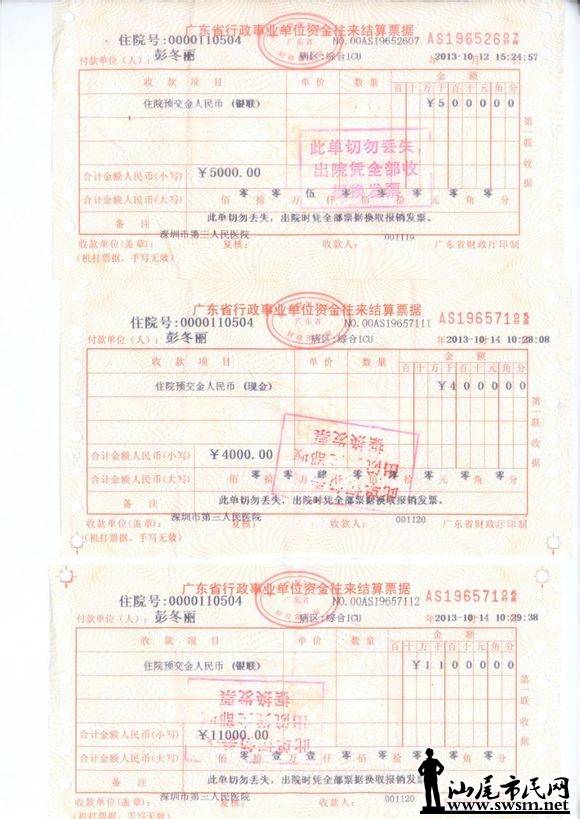 广东省行政事业单位资金往来结算票据
住院号:0000110504
NO.00AS19652607
付款单位（人）：彭冬丽
病区:综合ICU
2013-10-12 15:24:57
收款项目 单价 数量 金额
百十万千百十元角分
住院预交金人民币（银联） ￥500000
此单切勿丢失,
出院凭全部收
据换发票
第一联 收据
合计金额人民币(小写) ￥5000.00
合计金额人民币(大写) 佰零拾零万伍仟零佰零拾零元零角零分
备注 此单切勿丢失，出院时凭全部票据换取报销发票。
深圳市第三人民医院
收款单位(盖章): 复核: 收款人: 001119 广东省财政厅印制
(机打票据，手写无效)
广东省行政事业单位资金往来结算票据
住院号:0000110504
NO.00AS19657111
付款单位（人）：彭冬丽
病区:综合ICU
2013-10-14 10:28:08
收款项目 单价 数量 金额
百十万千百十元角分
住院预交金人民币（现金） ￥400000
第一联 收据
合计金额人民币(小写) ￥4000.00
合计金额人民币(大写) 佰零拾零万肆仟零佰零拾零元零角零分
备注 此单切勿丢失，出院时凭全部票据换取报销发票。
深圳市第三人民医院
收款单位(盖章): 复核: 收款人: 001120 广东省财政厅印制
(机打票据，手写无效)
广东省行政事业单位资金往来结算票据
住院号:0000110504
NO.00AS19657112
付款单位（人）：彭冬丽
病区:综合ICU
2013-10-14 10:29:38
收款项目 单价 数量 金额
百十万千百十元角分
住院预交金人民币（银联） ￥1100000
第一联 收据
合计金额人民币(小写) ￥11000.00
合计金额人民币(大写) 佰零拾壹万壹仟零佰零拾零元零角零分
备注 此单切勿丢失，出院时凭全部票据换取报销发票。
深圳市第三人民医院
收款单位(盖章): 复核: 收款人: 001120
(机打票据，手写无效)
汕尾市民网
www.swsm.net